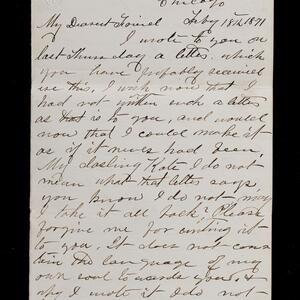 Chicago
My Dearest Friend Feby 18th, 1871
I wrote to you on
last Thursday a letter, which
you have probably received
ere this, I wish now that I
had not written such a letter
as that is to you, and would
now that I could make it
as if it never had been,
My darling Kate I do not
mean what that letter says,
you know I do not, may
I take it all back? Please
forgive me for writing it
to you. It does not contain
the language of my
own soul towards you, &
why I wrote it I do not